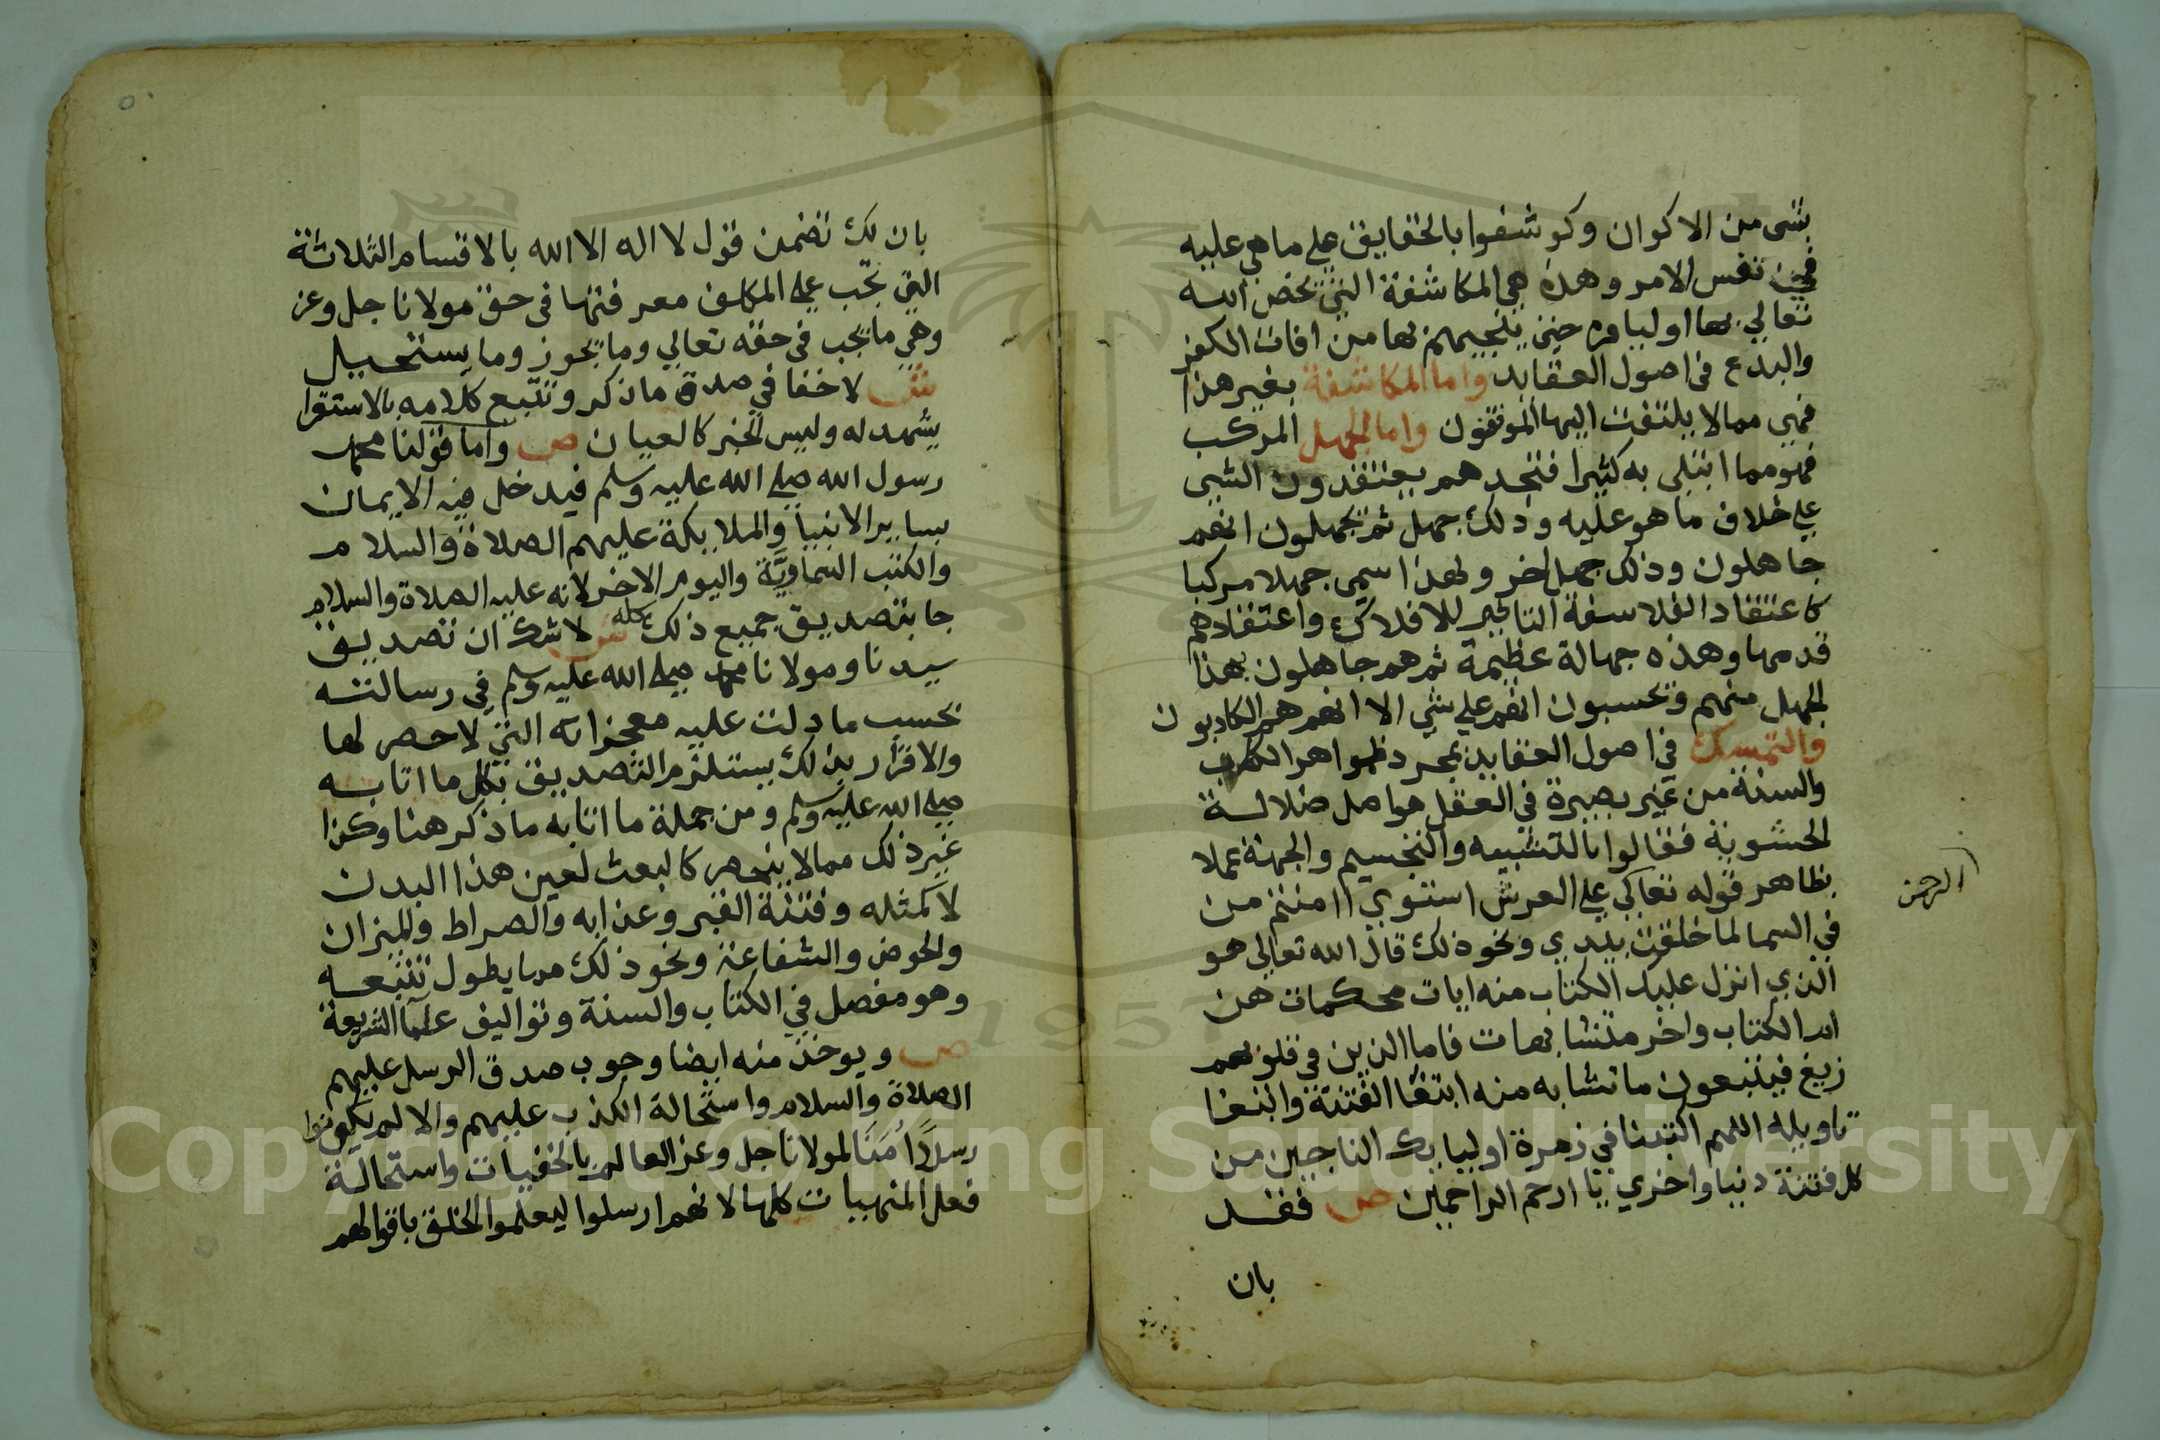 بشى من الاكوان وكوشفوا بالحقايق علي ماهي عليه
في نفس الامر وهذه هي المكاشفة التي يخص الله
تعالي بها اولياوه حتى ينجيهم بها من افات الكفر
والبدع في اصول العقايد واما المكاشفة بغير هذا
فهي مما لا يلتفت اليها الموفقون واما الجهل المركب
فهو مما ابتلى به كثيرا فتجدهم يعتقدون الشي
علي خلاف ما هو عليه وذلك جهل ثم يجهلون انهم
جاهلون وذلك جهل اخر ولهذا سمي جهلا مركبا
كاعتقاد الفلاسفة التاثير للافلاك واعتقادهم
قدمها وهذه جهالة عظيمة ثم هم جاهلون بهذا
الجهل منهم ويحسبون انهم علي شي الا انهم هم الكاذبون
والتمسك في اصول العقايد بمجرد ظواهر الكتاب
والسنة من غير بصيرة في العقل هو اصل ضلالة
الحشوية فقالوا بالتشبيه والتجسيم والجهة عملا
بظاهر قوله تعالي علي العرش استوي اامنتم من
الرحمن
في السما لما خلقت بيدي ونحو ذلك قال الله تعالى هو
الذي انزل عليك الكتاب منه ايات محكمات هن
ام الكتاب واخر متشابهات فاما الذين في قلوبهم
زيغ فيتبعون ما تشابه منه ابتغا الفتنة وابتغا
تاويله اللهم اكتبنا في زمرة اوليايك الناجيين من
كل فتنة دنيا واخري يا ارحم الراحمين ص فقد
بان
بان لك تضمن قول لا اله الا الله بالاقسام الثلاثة
التي يجب علي المكلف معرفتها في حق مولانا جل وعز
وهي ما يجب في حقه تعالي وما يجوز وما يستحيل
ش لا خفا في صدق ما ذكر وتتبع كلامه بالاستقرا
يشهد له وليس الخبر كالعيان ص واما قولنا محمد
رسول الله صلي الله عليه وسلم فيدخل فيه الايمان
بساير الانبيا والملايكة عليهم الصلاة والسلام
والكتب السماويَّة واليوم الاخر لانه عليه الصلاة والسلام
جا بتصديق جميع ذلك كله ش لا شك ان تصديق
سيدنا ومولانا محمد صلي الله عليه وسلم في رسالته
بحسب ما دلت عليه معجزاته التي لا حصر لها
والاقرار بذلك يستلزم التصديق بكل ما اتا به
صلي الله عليه وسلم ومن جملة ما اتا به ما ذكر هنا وكذا
غير ذلك مما لا ينحصر كالبعث لعين هذا البدن
لا كمثله وفتنة القبر وعذابه والصراط والميزان
والحوض والشفاعة ونحو ذلك مما يطول تتبعه
وهو مفصل في الكتاب والسنة وتواليف علما الشريعة
ص ويوخذ منه ايضا وجوب صدق الرسل عليهم
الصلاة والسلام واستحالة الكذب عليهم والا لم يكونوا
رسلاً اُمَنَا لمولانا جل وعز العالم بالخفيات واستحالة
فعل المنهيات كلها لانهم ارسلوا ليعلموا الخلق باقوالهم
5
Copyright © King Saud University
1957